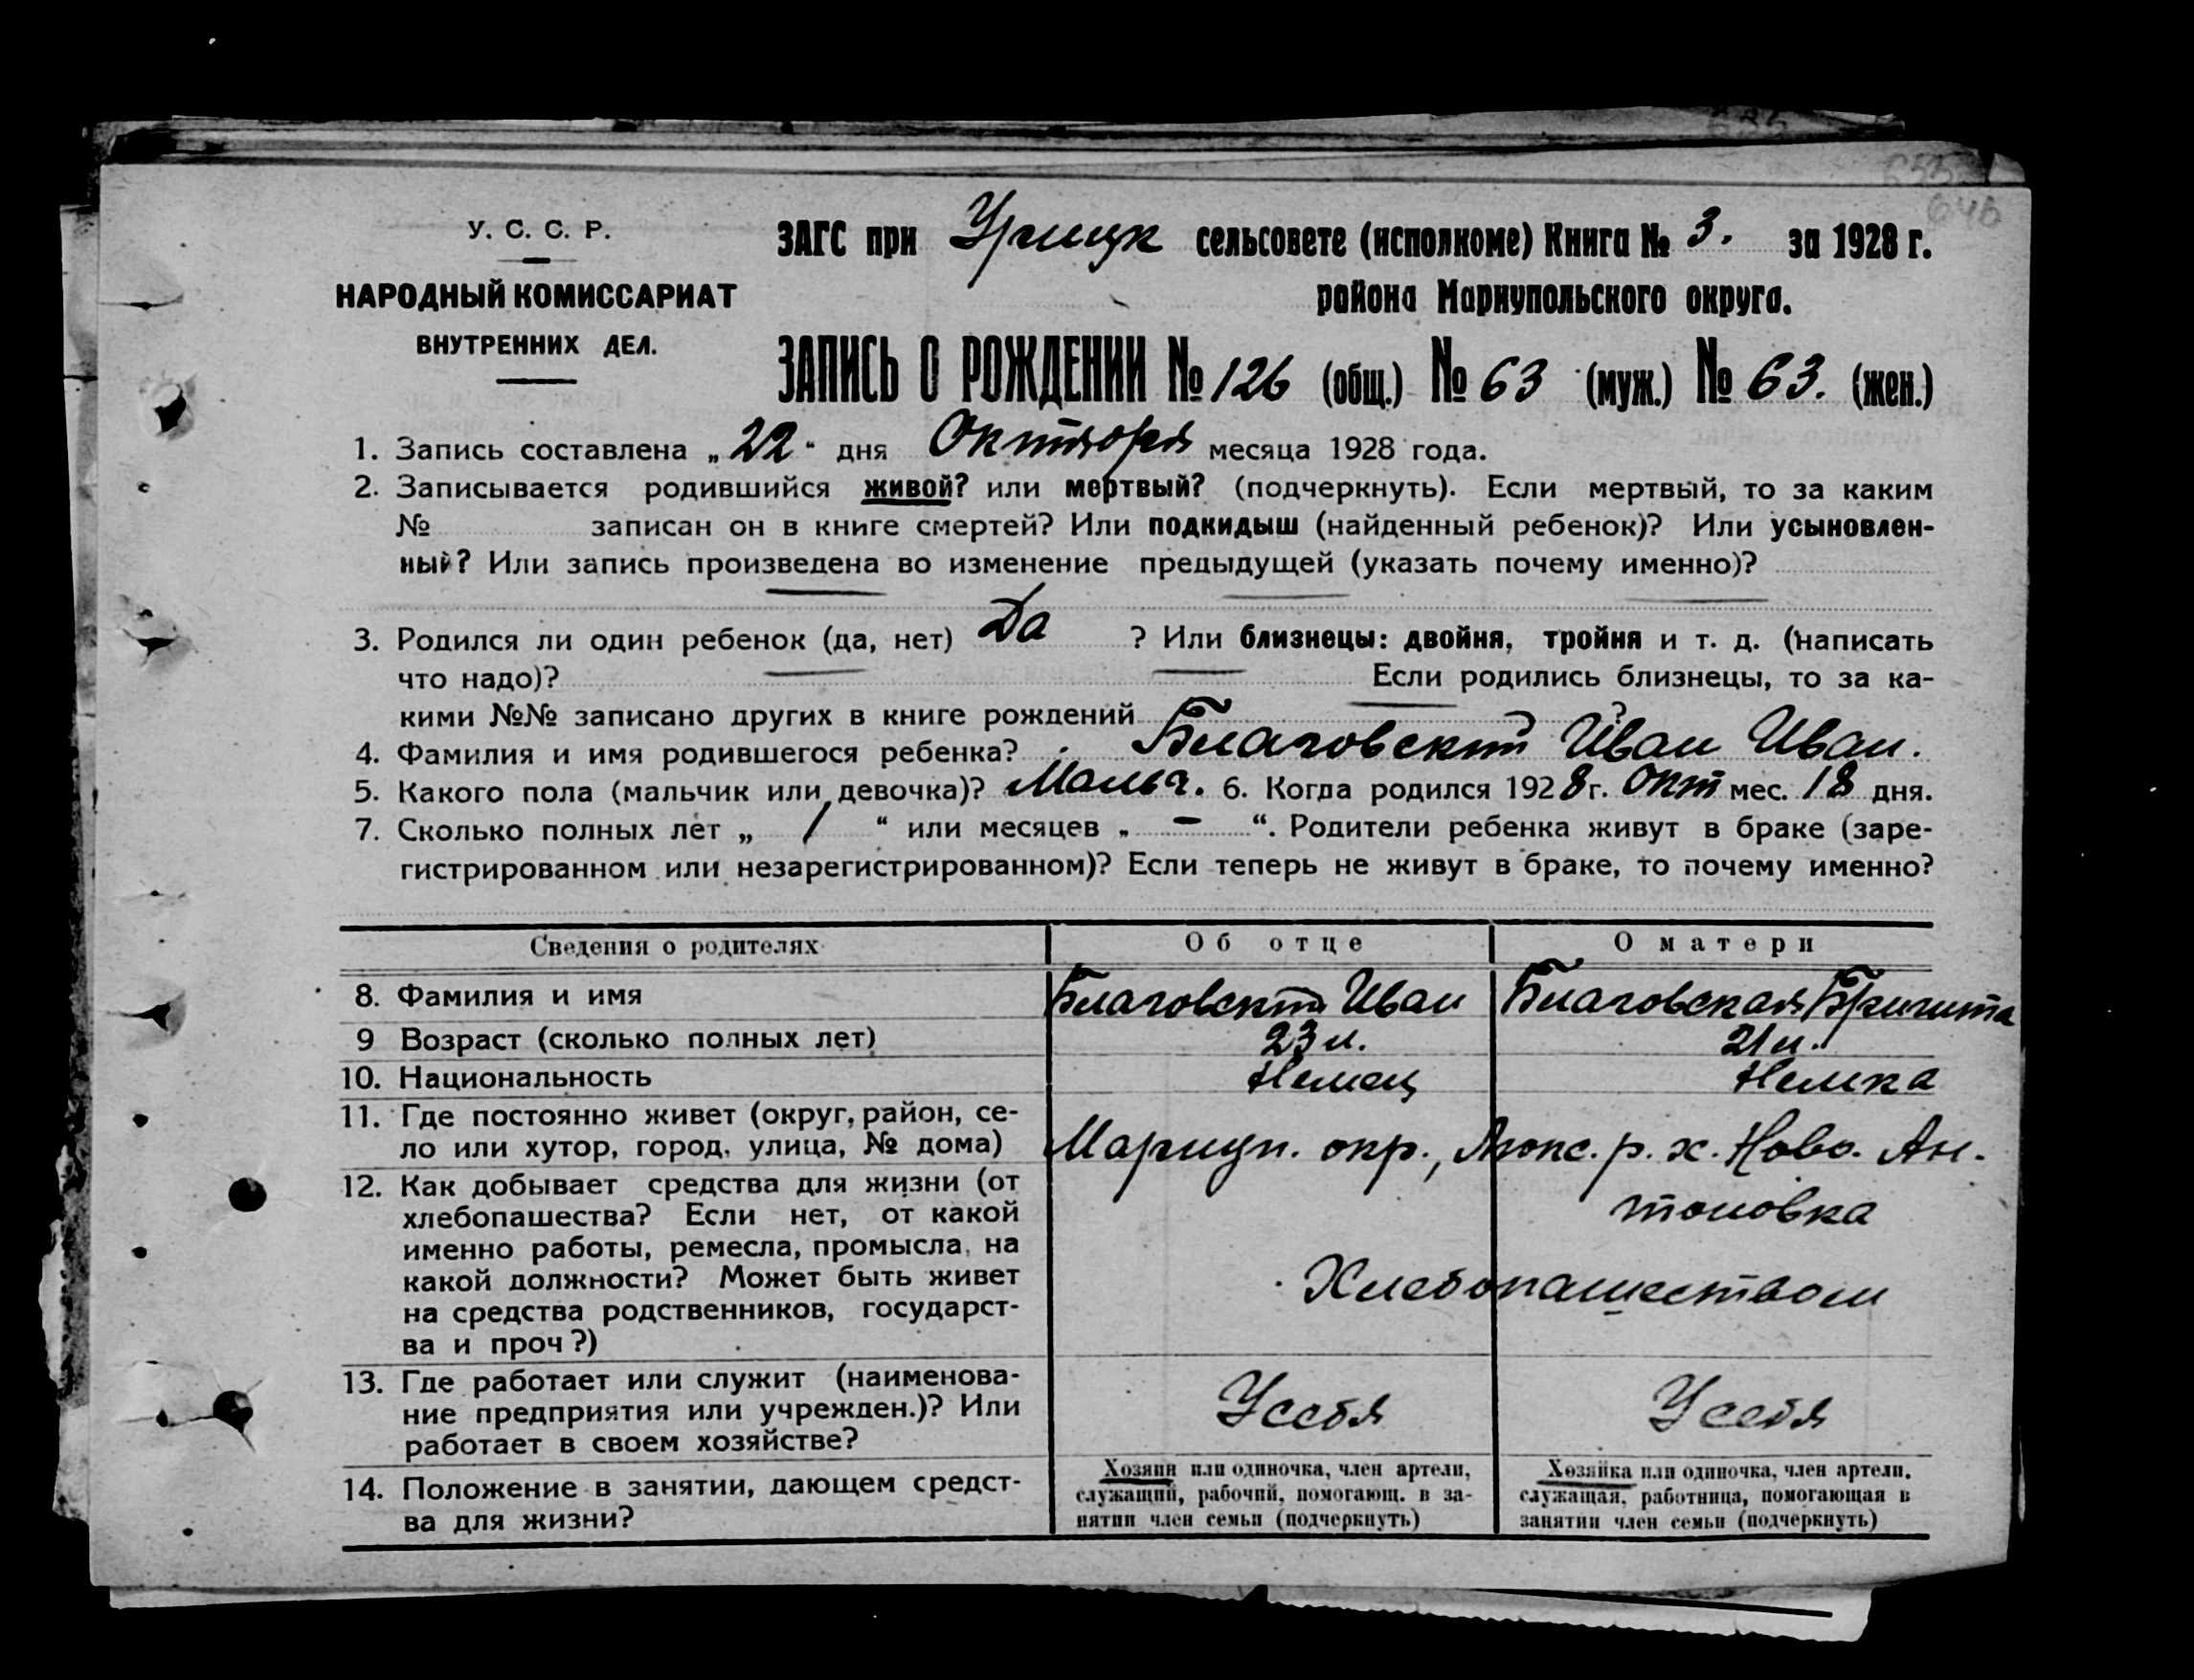 635
655
646
У. С. С. Р.
НАРОДНЫЙ КОМИССАРИАТ
ВНУТРЕННИХ ДЕЛ.
ЗАГС при Урицк сельсовете (исполкоме) Книга № 3. за 1928 г.
района Мариупольского округа.
ЗАПИСЬ О РОЖДЕНИИ № 126 (общ.) № 63 (муж.) № 63. (жен.)
1. Запись составлена „22“ дня Октября месяца 1928 года.
2. Записывается родившийся живой? или мертвый? (подчеркнуть). Если мертвый, то за каким
№ записан он в книге смертей? Или подкидыш (найденный ребенок)? Или усыновлен-
ный? Или запись произведена во изменение предыдущей (указать почему именно)?
3. Родился ли один ребенок (да, нет) Да ? Или близнецы: двойня, тройня и т. д. (написать
что надо)? Если родились близнецы, то за ка-
кими №№ записано других в книге рождений ?
4. Фамилия и имя родившегося ребенка? Благовский Иван Иван.
5. Какого пола (мальчик или девочка)? Мальч. 6. Когда родился 1928 г. Окт мес. 18 дня.
7. Сколько полных лет „ 1 “ или месяцев „ – “. Родители ребенка живут в браке (заре-
гистрированном или незарегистрированном)? Если теперь не живут в браке, то почему именно?
Сведения о родителях Об отце О матери
8. Фамилия и имя Благовский Иван Благовская Бригита
9 Возраст (сколько полных лет) 23 л. 21 л.
10. Национальность Немец Немка
11. Где постоянно живет (округ, район, се-
ло или хутор, город, улица, № дома) Мариуп. окр., Люкс. р. х. Ново. Ан-
тоновка
12. Как добывает средства для жизни (от
хлебопашества? Если нет, от какой
именно работы, ремесла, промысла, на
какой должности? Может быть живет
на средства родственников, государст-
ва и проч?)
Хлебопашеством
13. Где работает или служит (наименова-
ние предприятия или учрежден.)? Или
работает в своем хозяйстве?
У себя У себя
14. Положение в занятии, дающем средст-
ва для жизни?
Хозяин или одиночка, член артели,
служащий, рабочий, помогающ. в за-
нятии член семьи (подчеркнуть)
Хозяйка или одиночка, член артели,
служащая, работница, помогающая в
занятии член семьи (подчеркнуть)